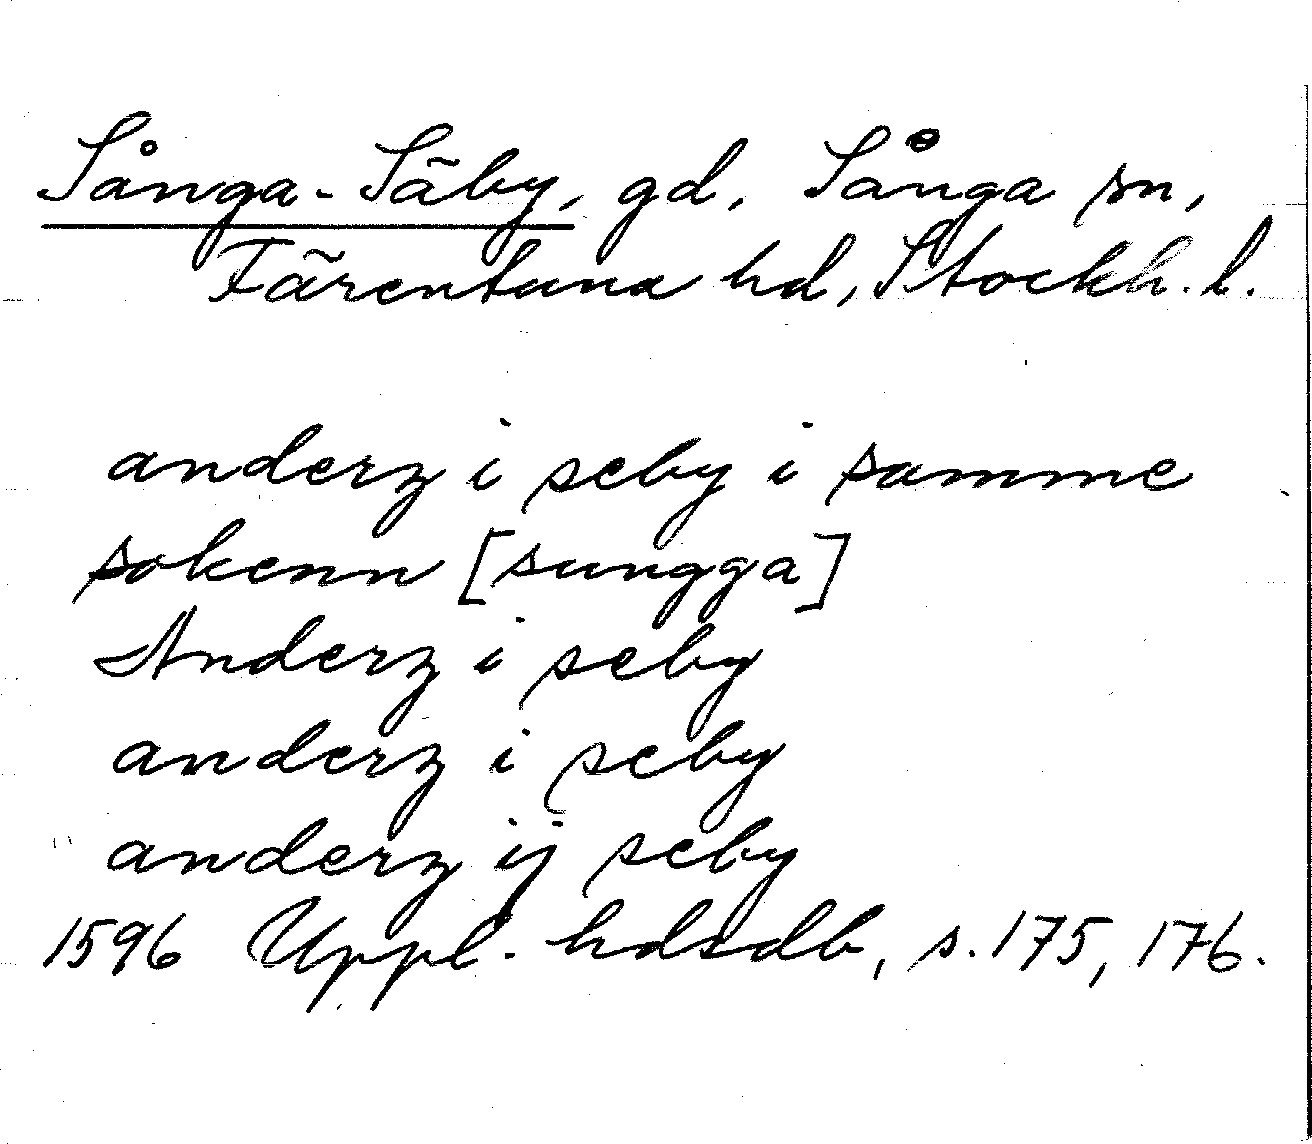 Sånga-Säby, gd, Sånga sn,
Färentuna hd, Stockh. l.
anderz i seby i samme
sokenn [sungga]
Anderz i seby
anderz i seby
anderz ij seby
1596 Uppl. hdsdb, s. 175, 176.